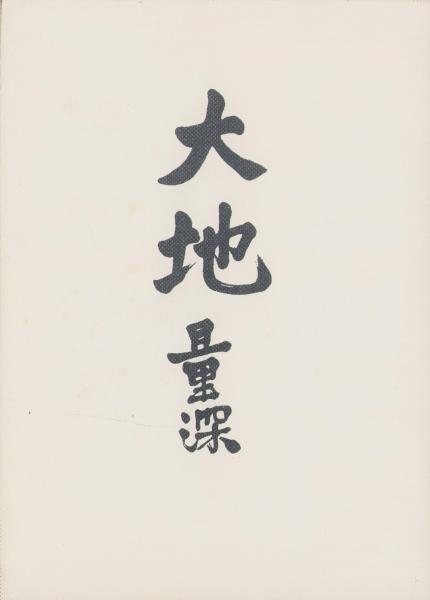 大地
量深